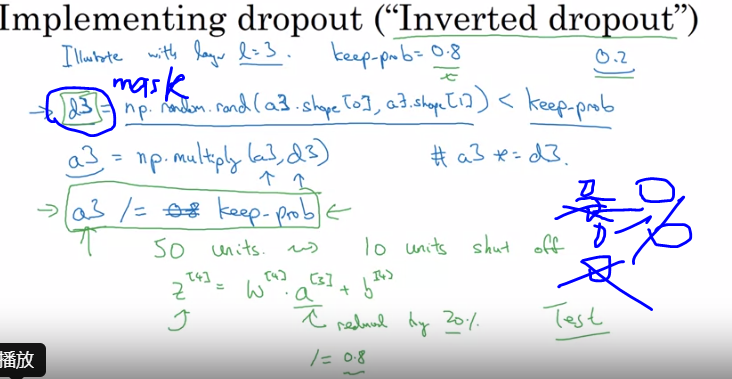 Implementing dropout (“Inverted dropout”)
Illustrate with layer l=3. keep-prob = 0.8 0.2
mask
→ d3 = np.random.rand(a3.shape[0], a3.shape[1]) < keep-prob
a3 = np.multiply(a3, d3) # a3 *= d3.
→ a3 /= 0.8 keep-prob ←
50 units. ⟿ 10 units shut off
z[4] = W[4] · a[3] + b[4]
reduced by 20% Test
/= 0.8
播放